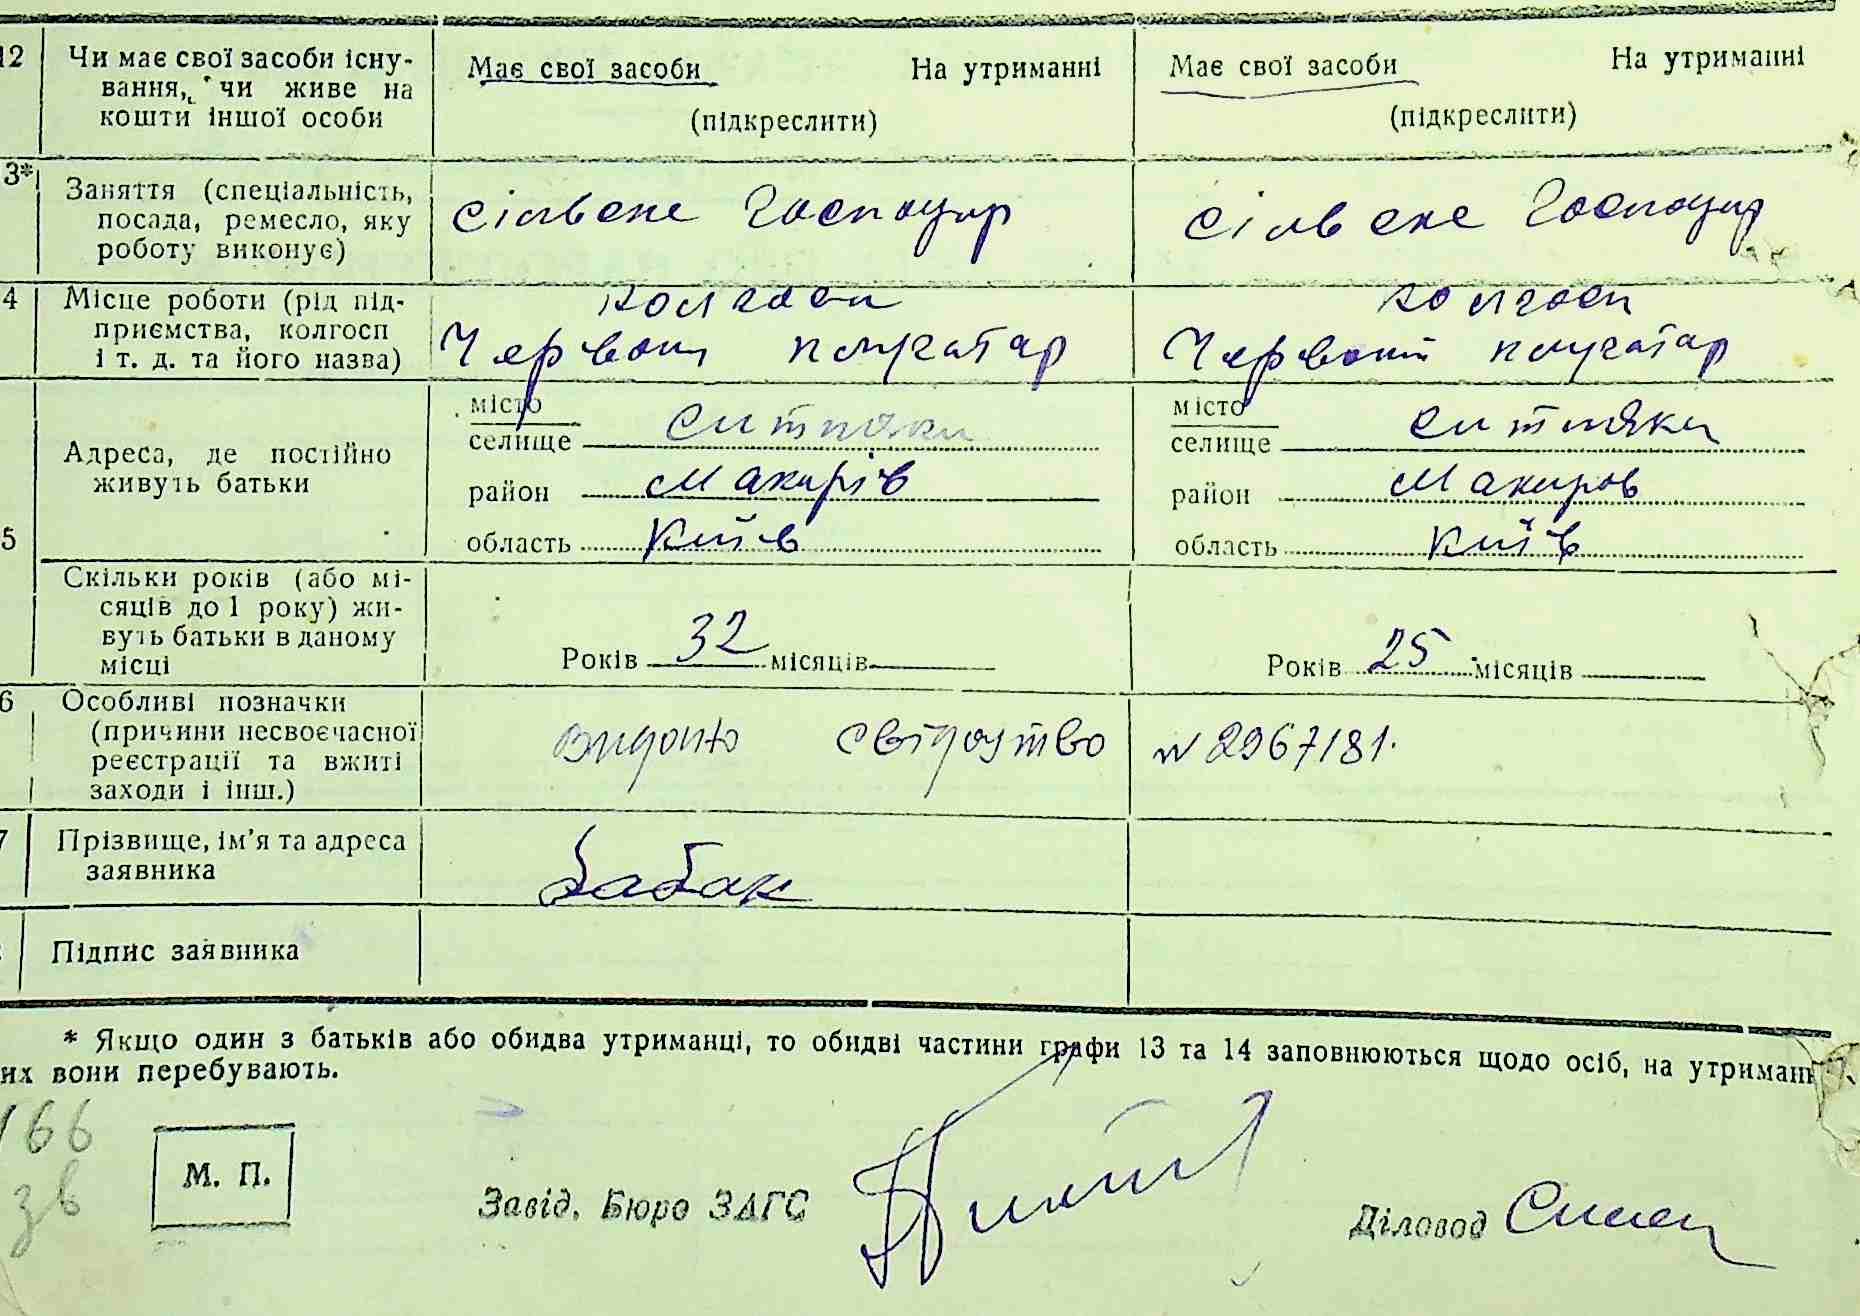 12 Чи має свої засоби існу- Має свої засоби На утриманні Має свої засоби На утриманні
вання, чи живе на
кошти іншої особи (підкреслити) (підкреслити)
3* Заняття (спеціальність,
посада, ремесло, яку сільске господар сільске господар
роботу виконує)
4 Місце роботи (рід під- колгосп колгосп
приємства, колгосп Червоний плугатар Червоний плугатар
і т. д. та його назва)
місто місто
селище Ситняки селище Ситняки
Адреса, де постійно
живуть батьки район Макарів район Макаров
5 область Київ область Київ
Скільки років (або мі-
сяців до 1 року) жи-
вуть батьки в даному
місці Років 32 місяців Років 25 місяців
6 Особливі позначки
(причини несвоєчасної видано свідоцтво N 2967181.
реєстрації та вжиті
заходи і інш.)
7 Прізвище, ім'я та адреса
заявника Бабак
Підпис заявника
* Якщо один з батьків або обидва утриманці, то обидві частини графи 13 та 14 заповнюються щодо осіб, на утриманні
их вони перебувають.
166
зв
М. П.
Завід. Бюро ЗАГС
Діловод